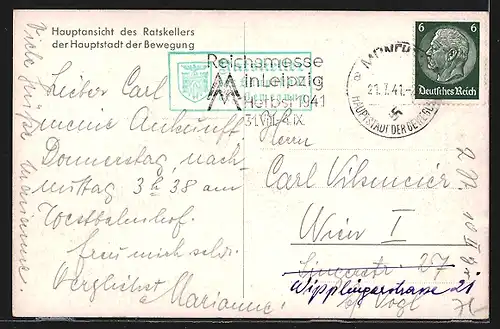 Hauptansicht des Ratskellers
der Hauptstadt der Bewegung
Reichsmesse
in Leipzig
Herbst 1941
31.VIII.-4.IX.
6 6
Deutsches Reich
21.7.41
HAUPTSTADT DER BEWEGUNG
Lieber Carl
meine Ankunft
Donnerstag nach-
mittag 3h 38 am
Westbahnhof.
freu mich sehr.
Herzlichst
Marianne.
Viele Grüße Marianne.
Herrn
Carl Vilsmeier
Wien I
Singerstr. 27
Wipplingerstrasse 21
bei Vogl